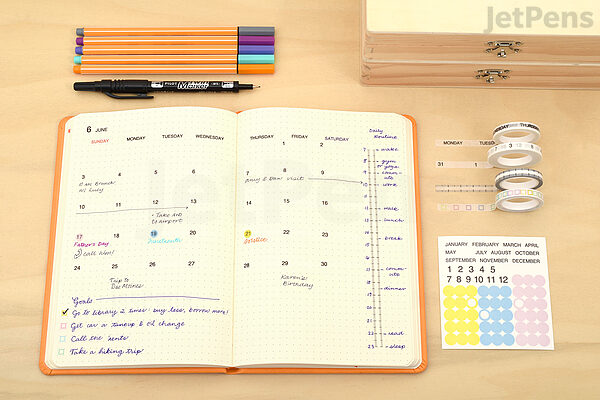 JetPens
PILOT
6 JUNE
SUNDAY MONDAY TUESDAY WEDNESDAY THURSDAY FRIDAY SATURDAY
1 2
3 4 5 6 7 8 9
10 11 12 13 14 15 16
• Take
to airport
17 18 19 20 21 22 23
Father's Day
Juneteenth
Solstice
call
24 25 26 27 28 29 30
Trip to
Des Moines
Karen's
Birthday
Goals
Go to library 2 times: buy less, borrow more!
Get car a tuneup & oil change
Call the 'rents
Take a hiking trip
Daily
Routine
7 wake
8 gym
9 or yoga
10 work
walk
lunch
break
dinner
22 read
23 sleep
MONDAY TUES
31 1
JANUARY FEBRUARY MARCH APRIL
MAY JULY AUGUST OCTOBER
SEPTEMBER NOVEMBER DECEMBER
1 2 3 4 5
7 8 9 10 11 12